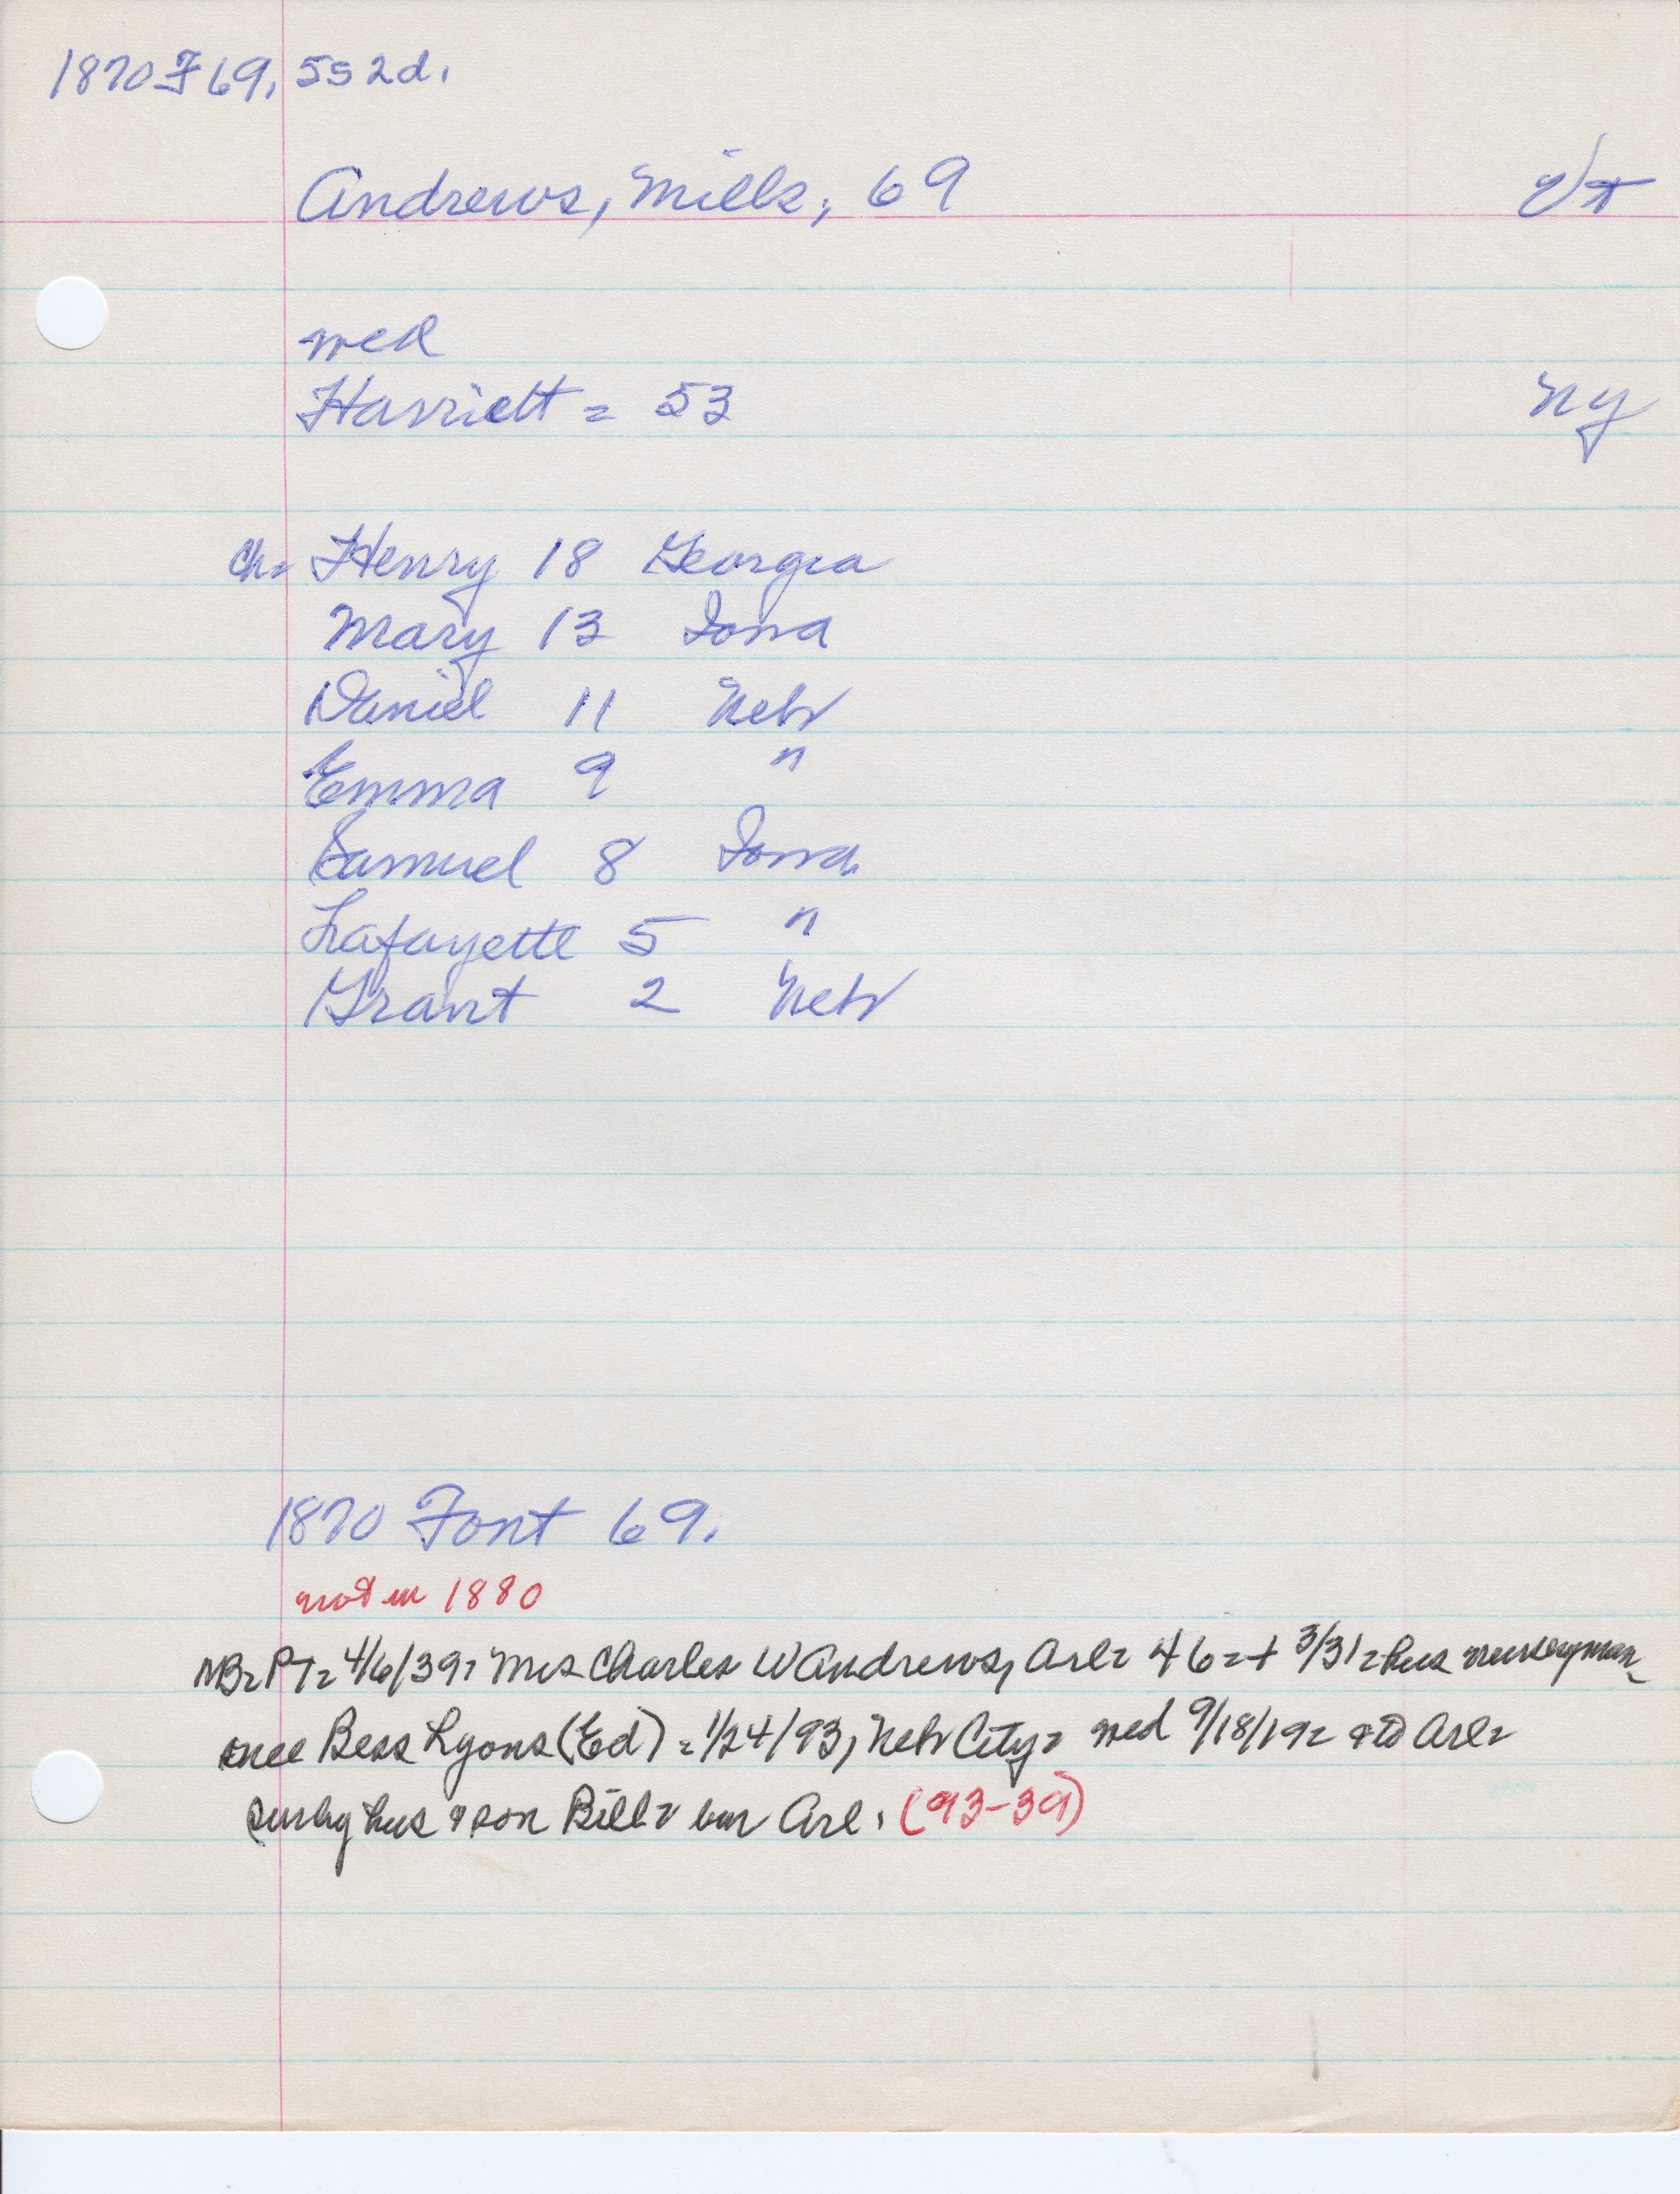 1870 F 69, 5s 2d.
Andrews, Mills, 69 Vt
med
Harriett = 53 NY
Ch= Henry 18 Georgia
Mary 13 Iowa
Daniel 11 Nebr
Emma 9 "
Samuel 8 Iowa
Lafayette 5 "
Grant 2 Nebr
1870 Font 69.
not in 1880
NB= PT= 4/6/39= Mrs Charles W Andrews, Arl= 46=+ 3/31= hus nurseryman
nee Bess Lyons (Ed) = 1/24/93, Nebr City= med 9/18/19= & to Arl=
surby hus & son Bill= bur Arl. (93-39)